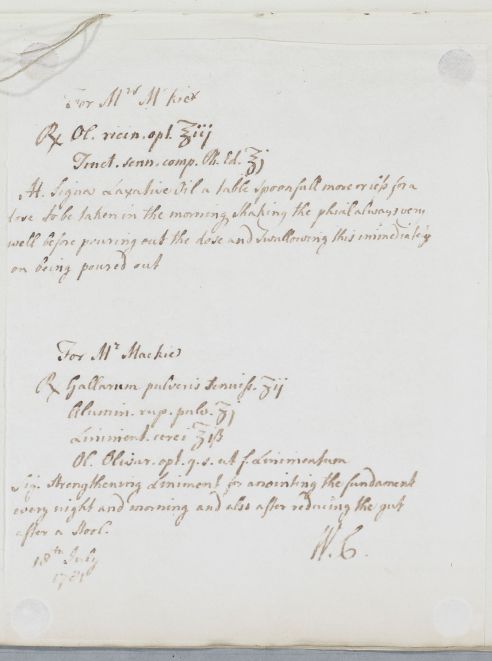 For Mrs Mckie
℞ Ol. ricin. opt. ℥iij
Tinct. senn. comp. Ph. Ed. ℥j
M. Signa Laxative Oil a table spoonfull more or less for a
dose to be taken in the morning, shaking the phial always very
well before pouring out the dose and swallowing this immediately
on being poured out
For Mr Mackie
℞ Gallarum pulveris tenuiss. ʒij
Alumin. rup. pulv. ʒj
Liniment. cerei ℥iß
Ol. Olivar. opt. q. s. ut f. Linimentum
Sig. Strengthening Liniment for anointing the fundament
every night and morning and also after reducing the gut
after a Stool.
W. C.
18th July